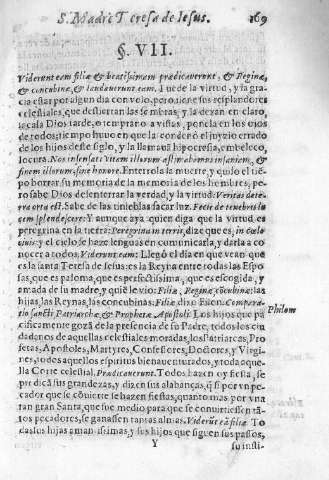 S. Madre Teresa de Iesus. 169
§. VII.
Viderunt eam filiæ & beatissimam prædicauerunt, & Reginæ,
& concubinæ, & laudauerunt eam. Luz de la virtud, y la gracia
estar por algun dia con velo, pero tiene sus resplandores
celestiales, que destierran las sombras, y la dexan en claro,
sacala Dios tarde, o temprano a vistas, ponela en los ojos
de todos; tiempo huuo en que la condenò el juyzio errado
de los hijos deste siglo, y la llamaua hipocresia, embeleco,
locura. Nos insensati vitam illorum æstimabamus insaniam, &
finem illorum sine honore. Enterrola la muerte, y quiso el tiẽpo
borrar su memoria de la memoria de los hombres, pero
sabe Dios desenterrar la verdad, y la virtud. Veritas de terra
orta est. Sabe de las tinieblas sacar luz. Fecit de tenebris lucem
splendescere: Y aunque aya quien diga que la virtud es
peregrina en la tierra: Peregrina in terris, dize que es, in cælo
ciuis: y el cielo se haze lenguas en comunicarla, y darla a conocer
a todos. Viderunt eam: Llegò el dia en que vean que
es la santa Teresa de Iesus: es la Reyna entre todas las Esposas,
que es paloma, que es perfectissima, que es escogida, y
amada de su madre, y què le vio: Filiæ, Reginæ, cõcubinæ: las
hijas, las Reynas, las concubinas: Filiæ, dixo Filon. Comparatio
sancti Patriarchæ & Prophetæ, Apostoli: Los hijos que pacificamente
gozã de la presencia de su Padre, todos los ciudadanos
de aquellas celestiales moradas, los Patriarcas, Profetas,
Apostoles, Martyres, Confessores, Doctores, y Virgines,
todos aquellos espiritus bienauenturados, y toda aquella
Corte celestial. Prædicauerunt. Todos hazen oy fiesta, se
predicã sus grandezas, y dizen sus alabanças, q̃ si por vn pecador
que se cõuierte se hazen fiestas, quanto mas por vna
tan gran Santa, que fue medio para que se conuirtiessen tãtos
pecadores, se ganassen tantas almas. Viderũt eã filiæ To
das sus hijas amantissimas, y sus hijos que siguen sus passos,
Philom
Y su insti-